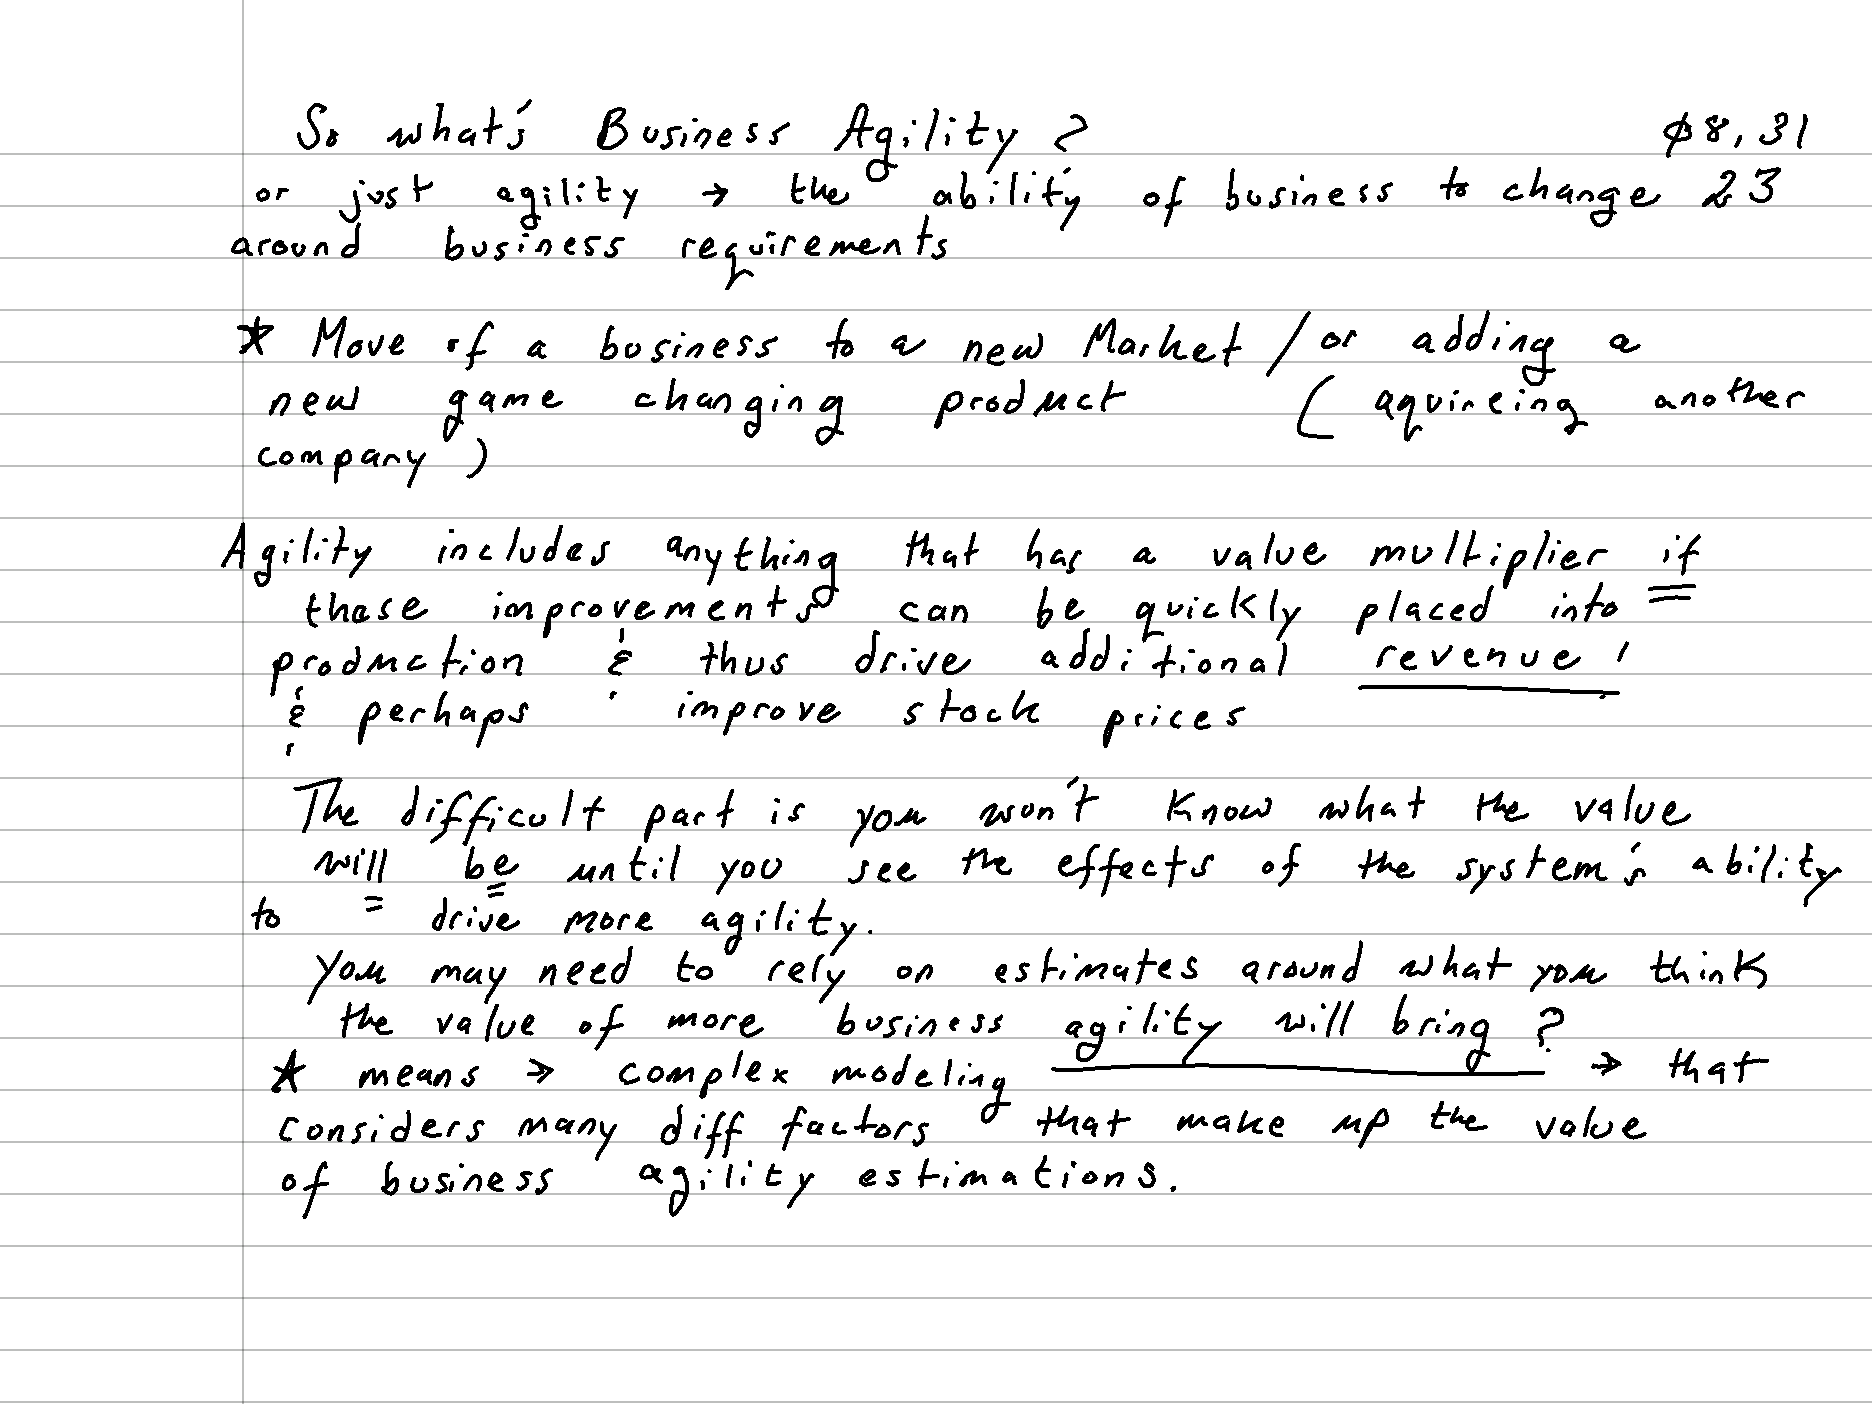 So what's Business Agility? 08, 31
or just agility → the ability of business to change 23
around business requirements
* Move of a business to a new Market / or adding a
new game changing product ( aquireing another
company )
Agility includes anything that has a value multiplier if
these improvements can be quickly placed into
production & thus drive additional revenue !
& perhaps improve stock prices
The difficult part is you won't know what the value
will be until you see the effects of the system's ability
to drive more agility.
You may need to rely on estimates around what you think
the value of more business agility will bring ?
* means → complex modeling → that
considers many diff factors that make up the value
of business agility estimations.